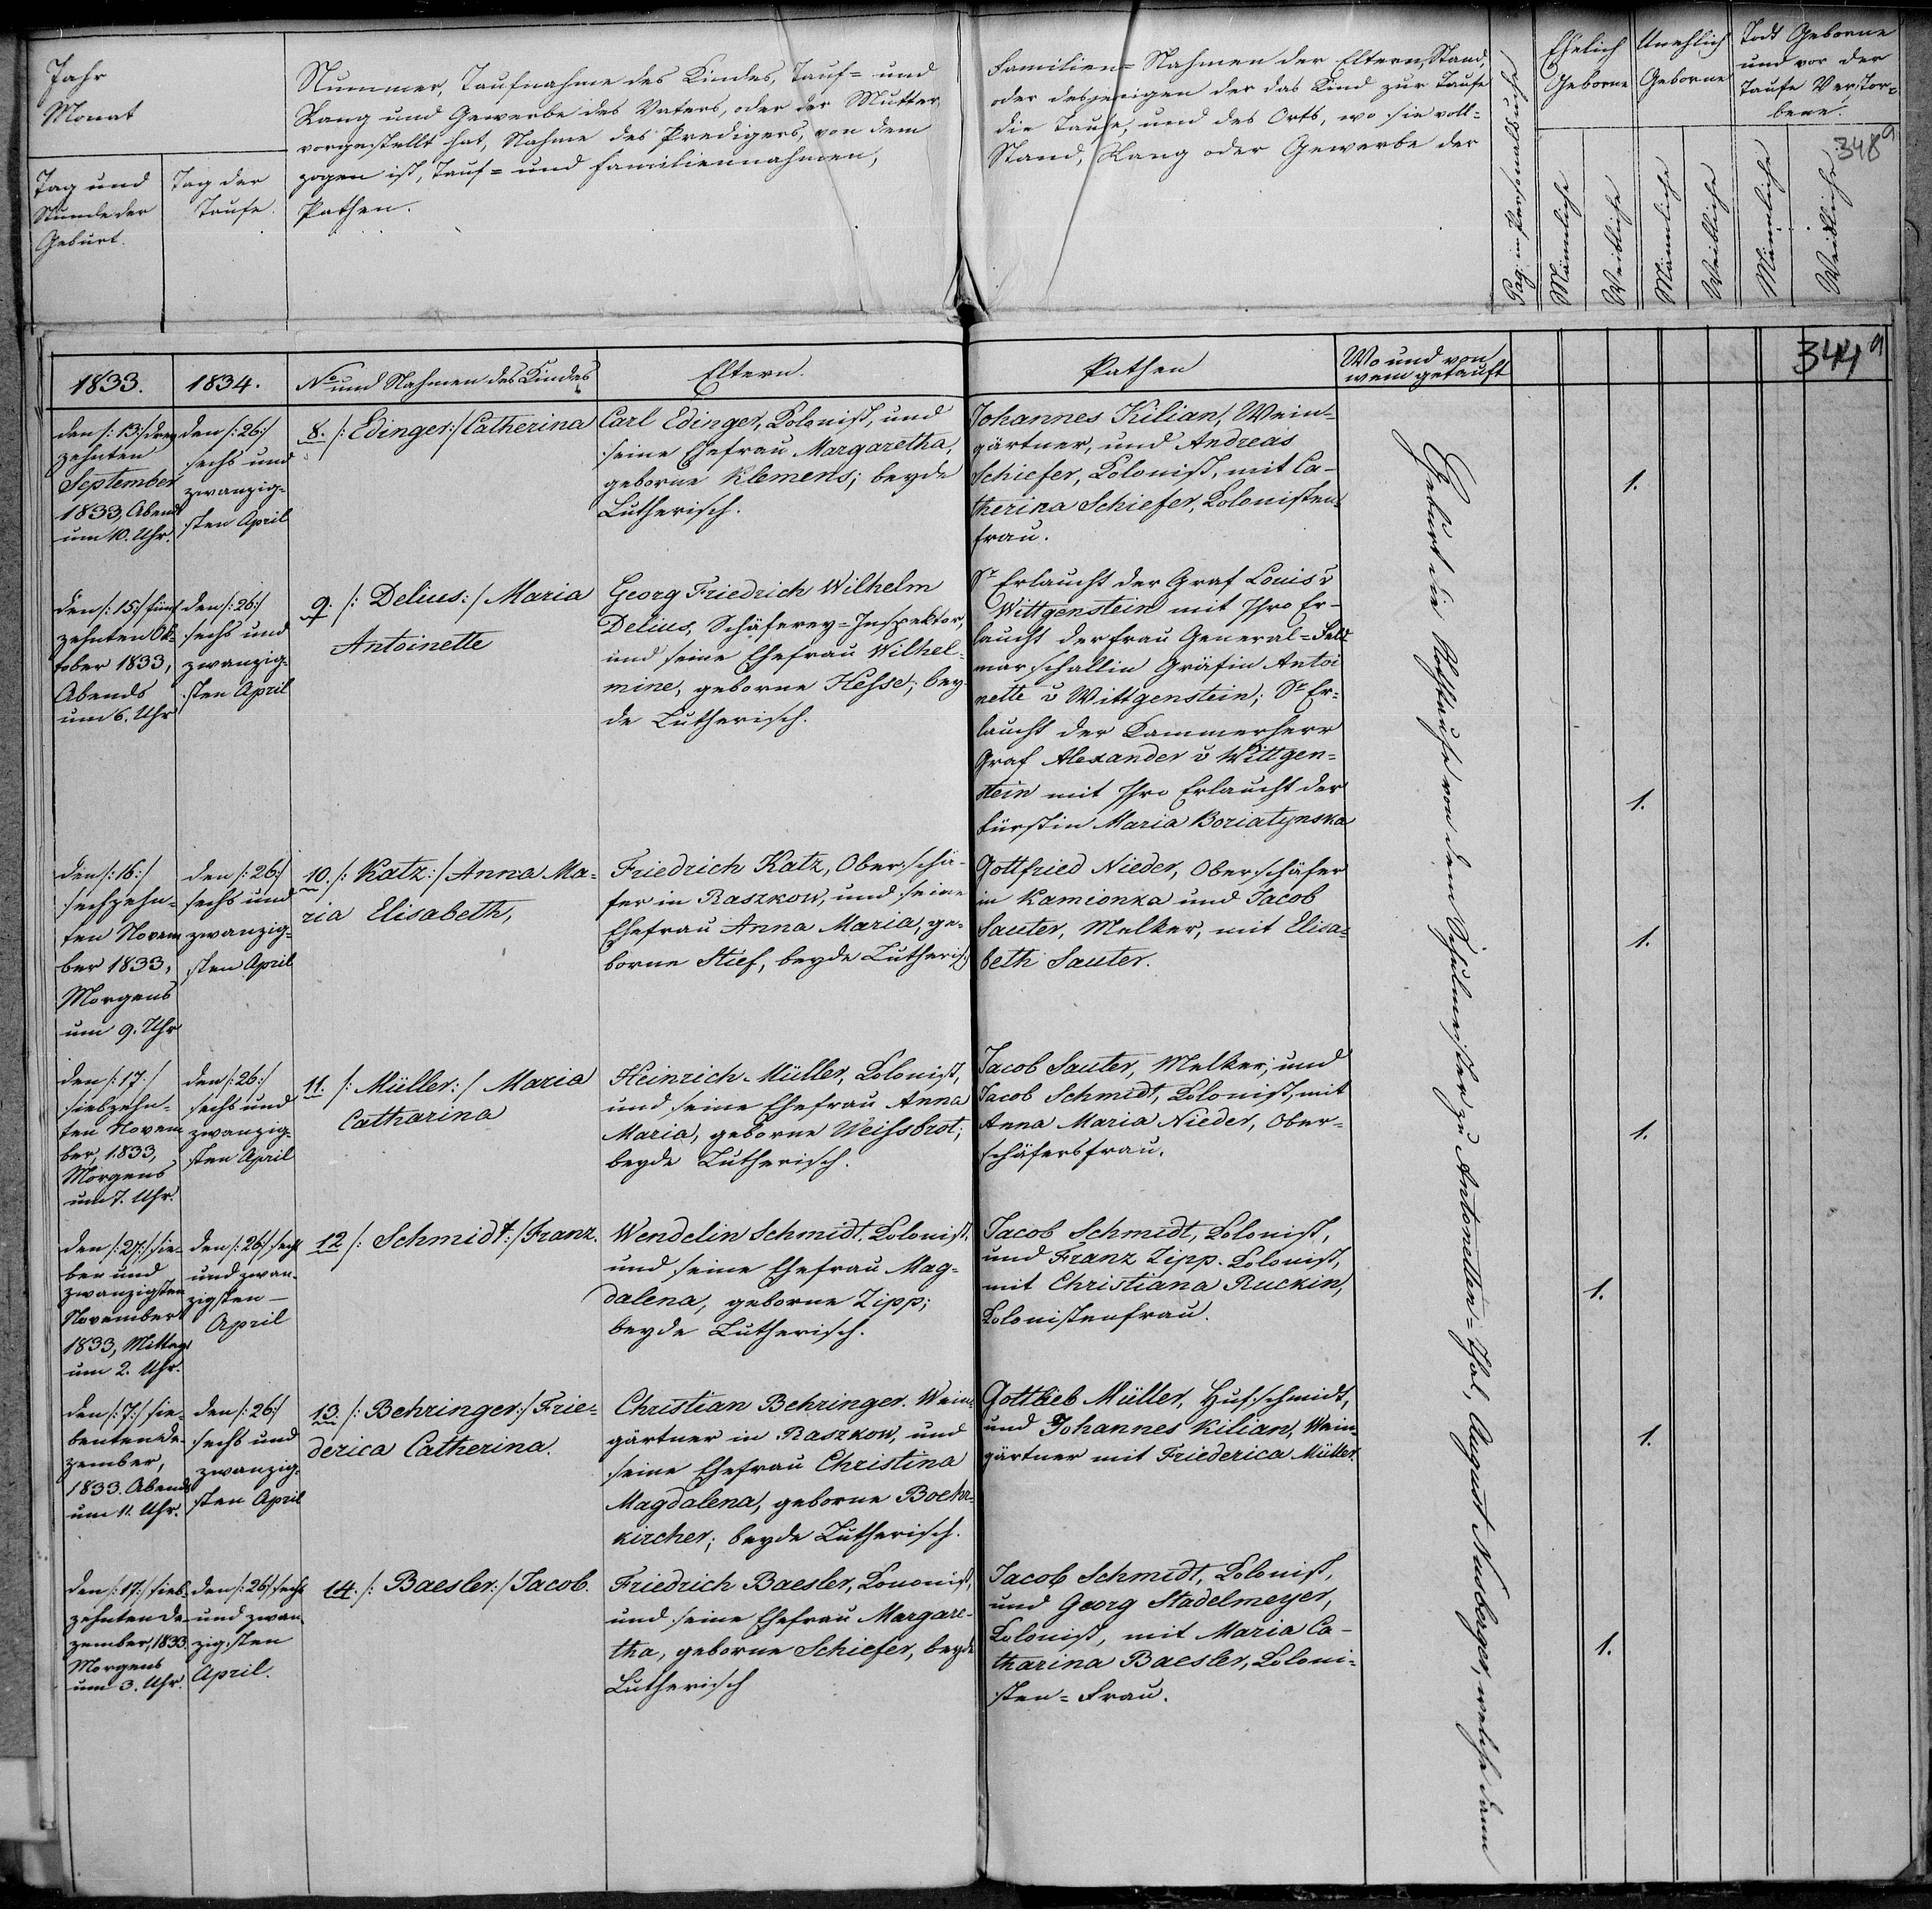 Jahr
Monat
Tag und
Stunde der
Geburt.
Tag der
Taufe.
Nummer, Taufnahme des Kindes, Tauf= und
Rang und Gewerbe des Vaters, oder der Mutter
vorgestellt hat, Nahme des Predigers, von dem
zogen ist, Tauf= und Familiennahmen,
Pathen.
Familien=Nahmen der Eltern, Stand,
oder desjenigen der das Kind zur Taufe
die Taufe, und des Orts, wo sie voll=
Stand, Rang oder Gewerbe der
Pag. im Personalbuche
Ehelich
Geborne
Unehlich
Geborne
Todt Geborne
und vor der
Taufe Verstor=
bene.
348a
Männliche
Weibliche
Männliche
Weibliche
Männliche
Weibliche
344a
1833.
1834.
No und Nahmen des Kindes
Eltern.
Pathen
Wo und von
wem getauft
den /:13:/ drey
zehnten
September
1833, Abends
um 10. Uhr.
den /:26:/
sechs und
zwanzig=
sten April
8. /: Edinger:/ Catherina
Carl Edinger, Kolonist, und
seine Ehefrau Margaretha,
geborne Klemens; beyde
Lutherisch.
Johannes Kilian, Wein=
gärtner, und Andreas
Schiefer, Kolonist, mit Ca=
therina Schiefer, Kolonisten=
frau.
1.
den /:15:/ fünf
zehnten Ok=
tober 1833,
Abends
um 6. Uhr
den /:26:/
sechs und
zwanzig=
sten April
9. /: Delius:/ Maria
Antoinette
Georg Friedrich Wilhelm
Delius, Schäferey=Inspektor,
und seine Ehefrau Wilhel=
mine, geborne Hesse; bey=
de Lutherisch.
Sr Erlaucht der Graf Louis v
Wittgenstein mit Ihro Er=
laucht der Frau General=Feld
marschallin Gräfin Antoi
nette v Wittgenstein; Sr Er=
laucht der Kammerherr
Graf Alexander v Wittgen=
stein mit Ihro Erlaucht der
Fürstin Maria Boriatynska
1.
den /:16:/
sechzehn=
ten Novem
ber 1833,
Morgens
um 9. Uhr
den /:26:/
sechs und
zwanzig=
sten April
10. /: Katz:/ Anna Ma=
ria Elisabeth,
Friedrich Katz, Oberschä=
fer in Raszkow, und seine
Ehefrau Anna Maria, ge=
borne Stief, beyde Lutherisch
Gottfried Nieder, Oberschäfer
in Kamionka und Jacob
Sauter, Melker, mit Elisa=
beth Sauter.
1.
den /:17:/
siebzehn=
ten Novem
ber, 1833,
Morgens
um 7. Uhr.
den /:26:/
sechs und
zwanzig=
sten April
11. /: Müller:/ Maria
Catharina
Heinrich Müller, Kolonist,
und seine Ehefrau Anna
Maria, geborne Weissbrot;
beyde Lutherisch.
Jacob Sauter, Melker, und
Jacob Schmidt, Kolonist, mit
Anna Maria Nieder, Ober=
schäfersfrau.
1.
den /:27:/ sie=
ben und
zwanzigsten
November
1833, Mittags
um 2. Uhr.
den /:26:/ sechs
und zwan=
zigsten
April
12. /: Schmidt:/ Franz.
Wendelin Schmidt, Kolonist,
und seine Ehefrau Mag=
dalena, geborne Zipp;
beyde Lutherisch.
Jacob Schmidt, Kolonist,
und Franz Zipp. Kolonist,
mit Christiana Ruckin,
Kolonistenfrau.
1.
den /:7:/ sie=
benten De=
zember,
1833. Abends
um 11. Uhr.
den /:26:/
sechs und
zwanzig=
sten April
13. /: Behringer:/ Frie=
derica Catherina.
Christian Behringer. Wein=
gärtner in Raszkow, und
seine Ehefrau Christina
Magdalena, geborne Boehr=
kircher; beyde Lutherisch.
Gottlieb Müller, Hufschmidt,
und Johannes Kilian, Wein=
gärtner mit Friederica Müller.
1.
den /:17:/ sieb=
zehnten De=
zember, 1833.
Morgens
um 3. Uhr.
den /:26:/ sechs
und zwan=
zigsten
April.
14. /: Baesler:/ Jacob.
Friedrich Baesler, Kolonist,
und seine Ehefrau Margare=
tha, geborne Schiefer, beyde
Lutherisch
Jacob Schmidt, Kolonist,
und Georg Stadelmeyer,
Kolonist, mit Maria Ca=
tharina Baesler, Koloni=
sten=Frau.
1.
Geburt die Nothtaufe von dem Schulmeister zu Antonetten=Thal, August Nusberger, welche dann